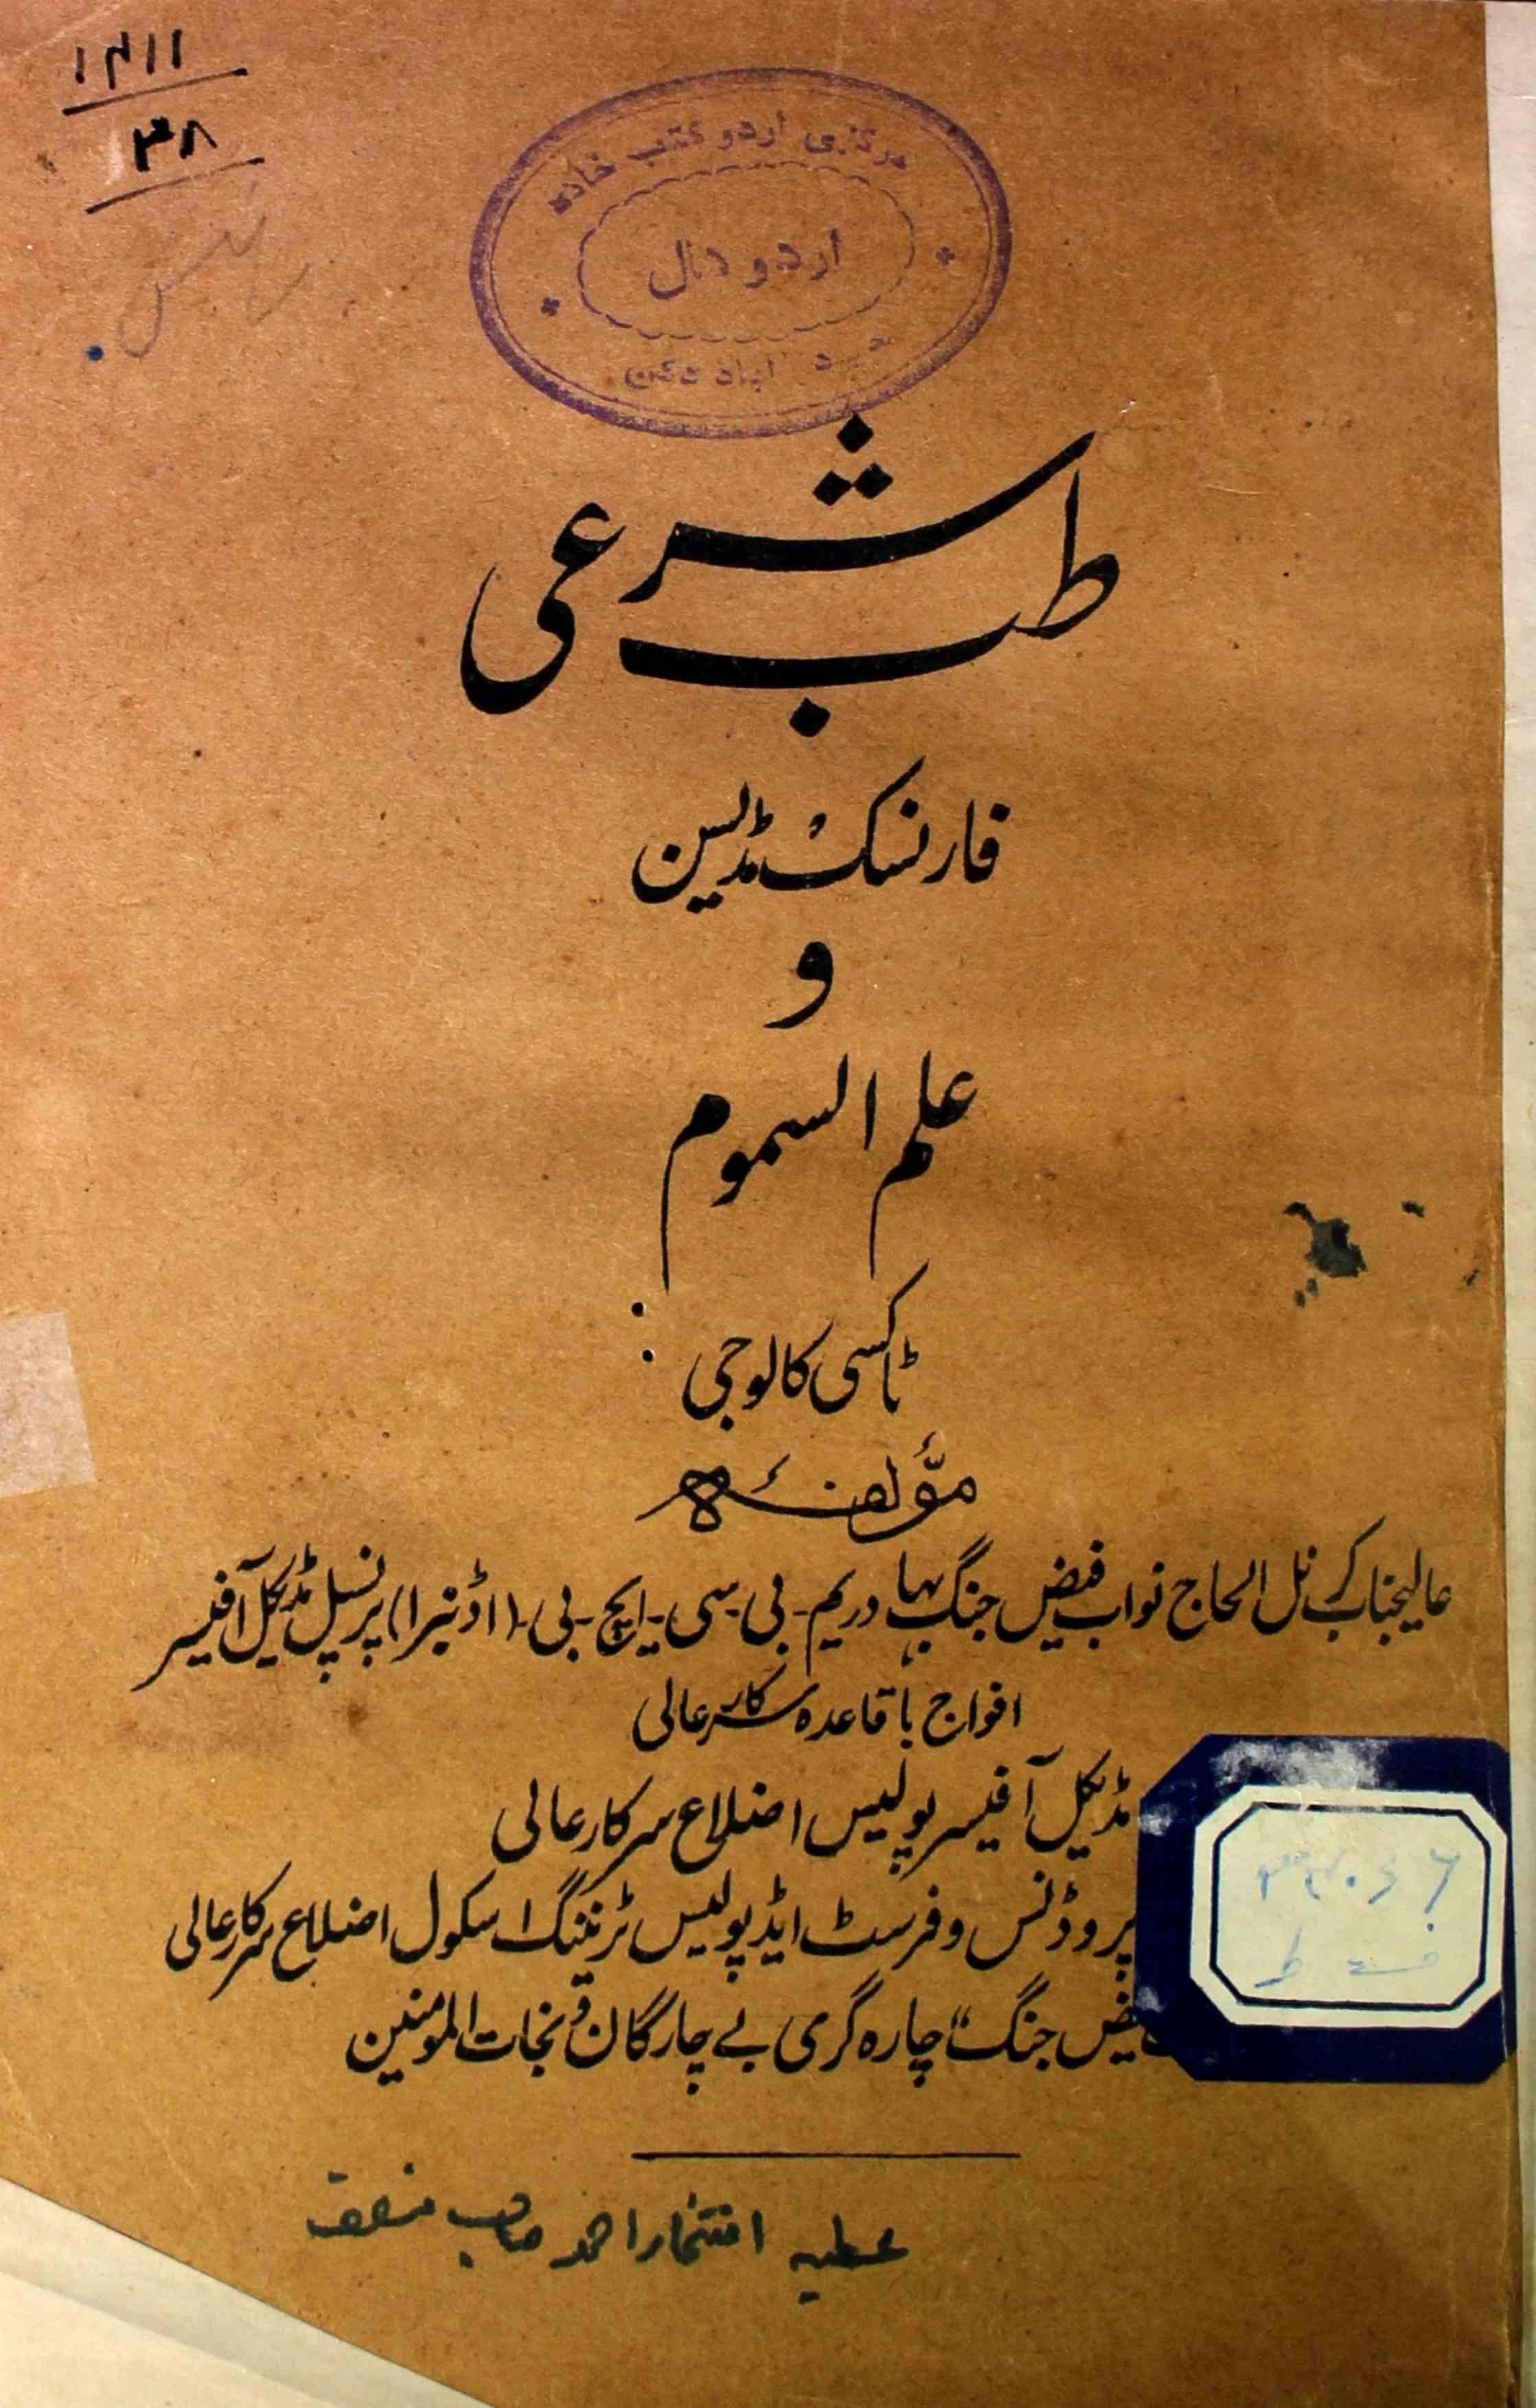 ۱۴۱۱
۳۸
مرکزی اردو کتب خانہ
اردو ہال
آباد دکن
طب شرعی
فارنسک مڈیسن
و
علم السموم
ٹاکسی کالوجی
مؤلفۂ
عالیجناب کرنل الحاج نواب فیض جنگ بہادر یم-بی-سی-ایچ-بی-(اڈنبرا) پرنسپل مڈیکل آفیسر
افواج باقاعدہ سرکار عالی
مڈیکل آفیسر پولیس اضلاع سرکار عالی
پروڈنس و فرسٹ ایڈ پولیس ٹرننگ اسکول اضلاع سرکار عالی
یض جنگ" چارہ گری بے چارگان و نجات المومنین
عطیہ افتخار احمد صاحب